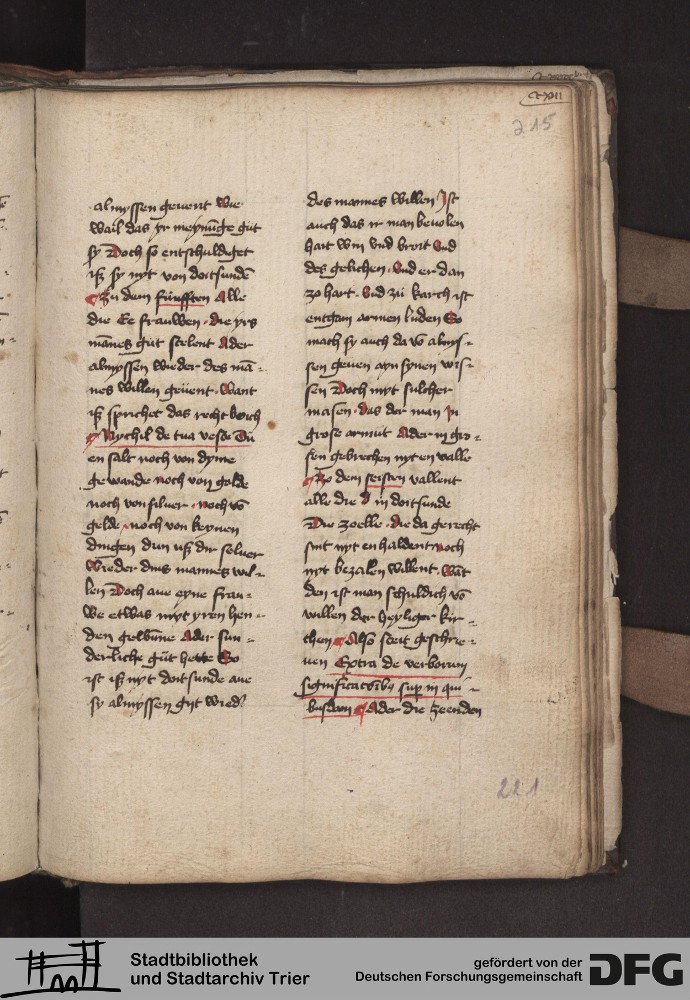 ccxii
215
almyssen gevent Wie
wail das yr meynu̅ge gut
sy Doch so entschuldiget
iß sy nyt von doitsunde̅
Zu dem funfften Alle
die Ee frauwen, die yrs
ma̅nes gut stelent Ader
almyssen wieder des ma̅-
nes willen geuent, Want
iß sprichet das recht boich
Nychil de tua veste Du
en salt noch von dyme
gewande noch von golde
noch von silver, noch vo̅
gelde, noch von keynen
dingen dun uß dir selver
Wieder dins mannes wil-
len Doch ave eyne frau-
we etwas myt yren hen-
den gewu̅ne Ader sun-
derliche gut hette So
ist iß nyt doitsunde ave
sy almyssen gijt wied
des mannes willen Ist
auch das ir man bevolen
hait win vnd broit vnd
des gelichen, vnd er dan
zo hart, vnd zu karch ist
entgain armen luden So
mach sy auch da vo̅ almys-
sen geven ayn synen wis-
sen Doch myt sulcher
masen, das der man in
grose armut Ader in gro-
sen gebrechen nyt en valle
Zo dem seisten vallent
alle die in doitsunde
Die zoelle, die da gerecht
sint nyt en haldent noch
nyt bezalen willent, Wa̅t
den ist man schuldich vo̅
willen der heyliger kir-
chen Also steit geschrie-
uen Extra de verborum
significacōib9 sup in qui-
busdam Ader die zeenden
221
Stadtbibliothek
und Stadtarchiv Trier
gefördert von der
Deutschen Forschungsgemeinschaft
DFG